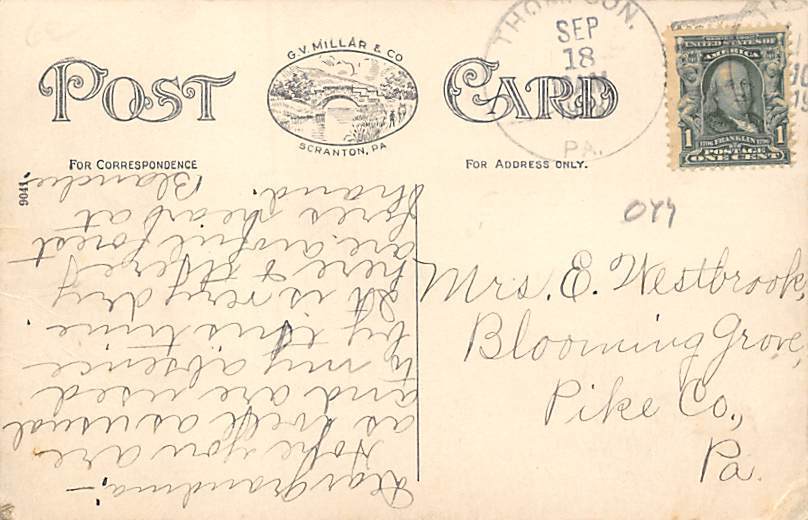 G.V. MILLAR & CO
SCRANTON, PA
POST CARD
FOR CORRESPONDENCE
FOR ADDRESS ONLY.
9041.
SEP
18
PA.
UNITED STATES OF
AMERICA
1 FRANKLIN 1
POSTAGE
ONE CENT
Mrs. E. Westbrook,
Blooming Grove,
Pike Co.,
Pa.
Dear Grandma;-
Hope you are
as well as usual
and are used
to my absence
by this time.
It is very dry
here &
are awful forest
fires near at
hand.
Blanche.